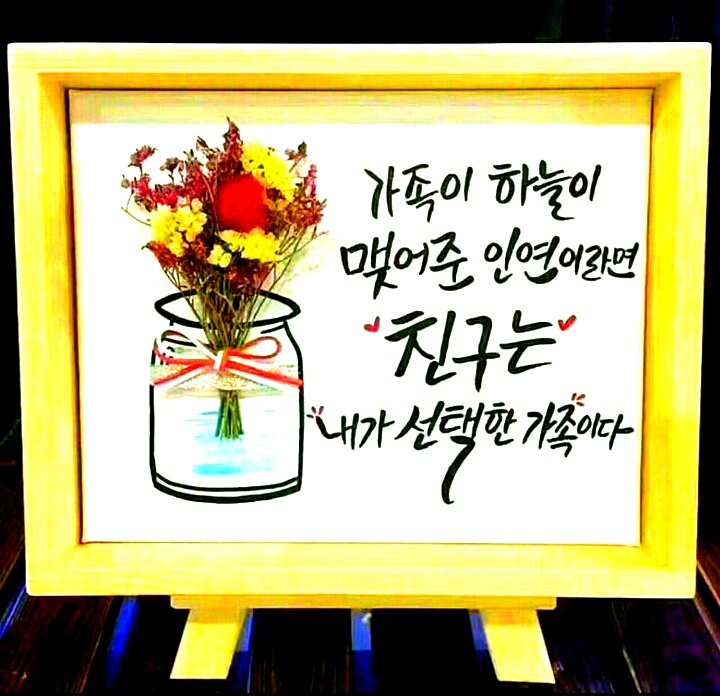 가족이 하늘이
맺어준 인연이라면
친구는
내가 선택한 가족이다